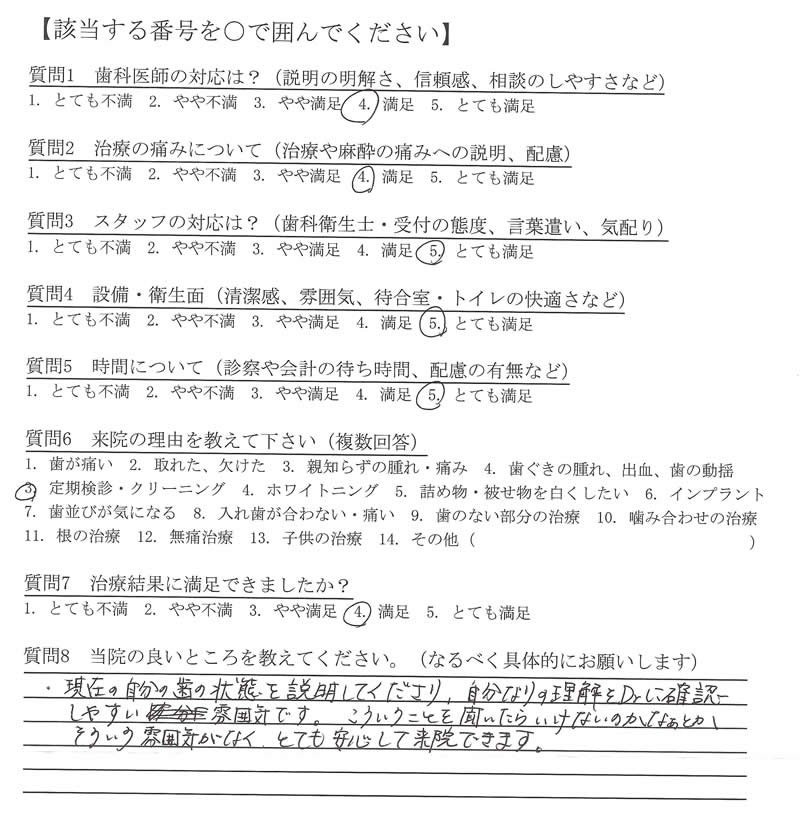 【該当する番号を○で囲んでください】
質問1 歯科医師の対応は?(説明の明解さ、信頼感、相談のしやすさなど)
1. とても不満 2. やや不満 3. やや満足 4. 満足 5. とても満足
質問2 治療の痛みについて(治療や麻酔の痛みへの説明、配慮)
1. とても不満 2. やや不満 3. やや満足 4. 満足 5. とても満足
質問3 スタッフの対応は?(歯科衛生士・受付の態度、言葉遣い、気配り)
1. とても不満 2. やや不満 3. やや満足 4. 満足 5. とても満足
質問4 設備・衛生面(清潔感、雰囲気、待合室・トイレの快適さなど)
1. とても不満 2. やや不満 3. やや満足 4. 満足 5. とても満足
質問5 時間について(診察や会計の待ち時間、配慮の有無など)
1. とても不満 2. やや不満 3. やや満足 4. 満足 5. とても満足
質問6 来院の理由を教えて下さい(複数回答)
1. 歯が痛い 2. 取れた、欠けた 3. 親知らずの腫れ・痛み 4. 歯ぐきの腫れ、出血、歯の動揺
3. 定期検診・クリーニング 4. ホワイトニング 5. 詰め物・被せ物を白くしたい 6. インプラント
7. 歯並びが気になる 8. 入れ歯が合わない・痛い 9. 歯のない部分の治療 10. 噛み合わせの治療
11. 根の治療 12. 無痛治療 13. 子供の治療 14. その他( )
質問7 治療結果に満足できましたか?
1. とても不満 2. やや不満 3. やや満足 4. 満足 5. とても満足
質問8 当院の良いところを教えてください。(なるべく具体的にお願いします)
・現在の自分の歯の状態を説明してくださり、自分なりの理解をDrに確認
しやすい 雰囲気です。こういうことを聞いたらいけないのかなぁとか、
そういう雰囲気がなく、とても安心して来院できます。